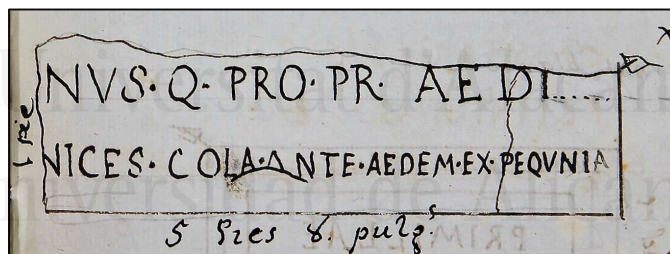 NVS·Q·PRO·PR· AEDI.....
NICES·COLA·ANTE·AEDEM·EX·PEQVNIA
1 pie
5 pies 8. pulg.s